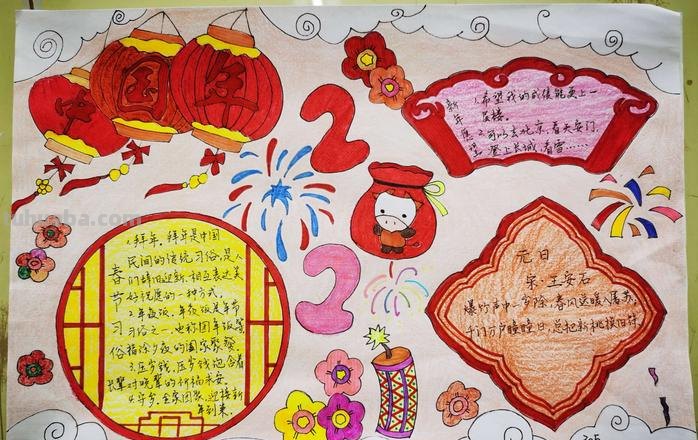 中
国
年
2
2
新年愿望
1.希望我的成绩能更上一
层楼。
2.可以去北京,看天安门,
登上长城,看雪……
春节习俗
1.拜年。拜年是中国
民间的传统习俗,是人
们辞旧迎新、相互表达美
好祝愿的一种方式。
2.年夜饭。年夜饭是春节
习俗之一,也称团年饭
指除夕夜的阖家聚餐
3.压岁钱。压岁钱包含着
长辈对晚辈的祝福
4.守岁。全家团聚,迎接新
年到来。
元日
宋·王安石
爆竹声中一岁除,春风送暖入屠苏。
千门万户曈曈日,总把新桃换旧符。